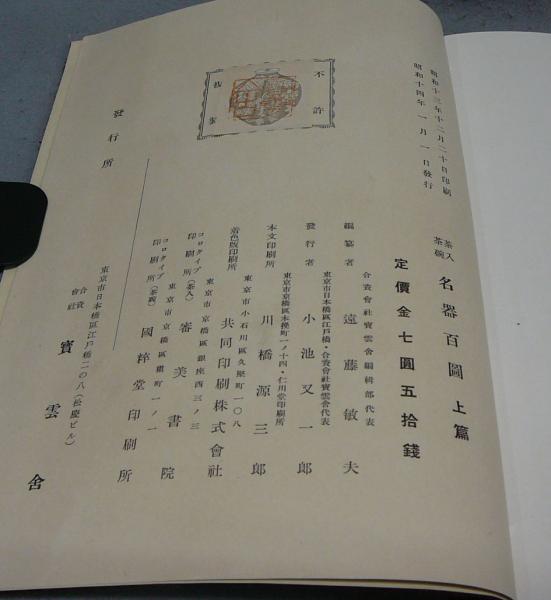 昭和十三年十二月二十日印刷
昭和十四年一月一日發行
茶入
茶碗
名器百圖 上篇
定價金七圓五拾錢
不許
複製
編纂者 合資會社寶雲舍編輯部代表 遠藤敏夫
發行者 東京市日本橋區江戸橋・合資會社寶雲舍代表 小池又一郎
本文印刷所 東京市京橋區木挽町一ノ十四・仁川堂印刷所 川橋源三郎
着色版印刷所 東京市小石川區久堅町一〇八 共同印刷株式會社
コロタイプ印刷所(茶入) 東京市京橋區銀座西三ノ三 審美書院
コロタイプ印刷所(茶碗) 東京市京橋區町一ノ一 國粹堂印刷所
發行所
東京市日本橋區江戸橋二の八(松慶ビル)
合資會社 寶雲舍